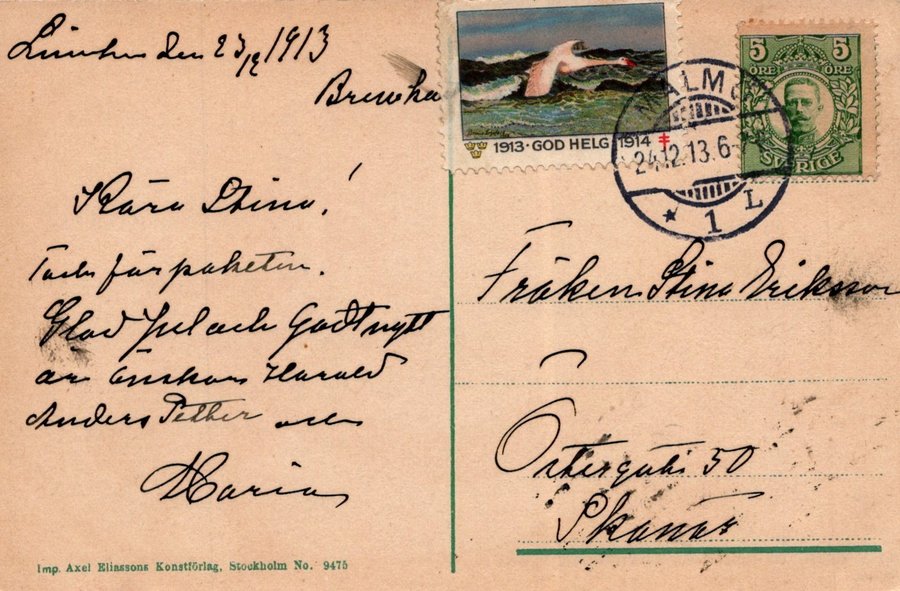 den 23/12 1913
Kära Stina!
Tack för paketen.
Glad Jul och Godt nytt
år önskas Harald
Anders Petter och
Maria
Imp. Axel Eliassons Konstförlag, Stockholm No. 9475
1913 · GOD HELG 1914
MALMÖ
24.12.13.6
1 L
5 5
ÖRE ÖRE
SVERIGE
Fröken Stina Eriksson
Östergatan 50
Skanör